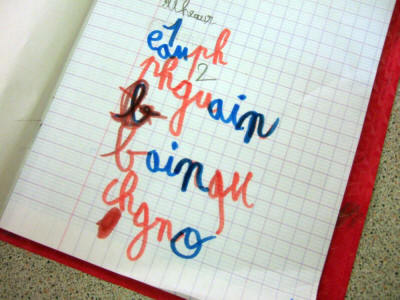 1
eauph
2
phguain
b
boingu
chgno